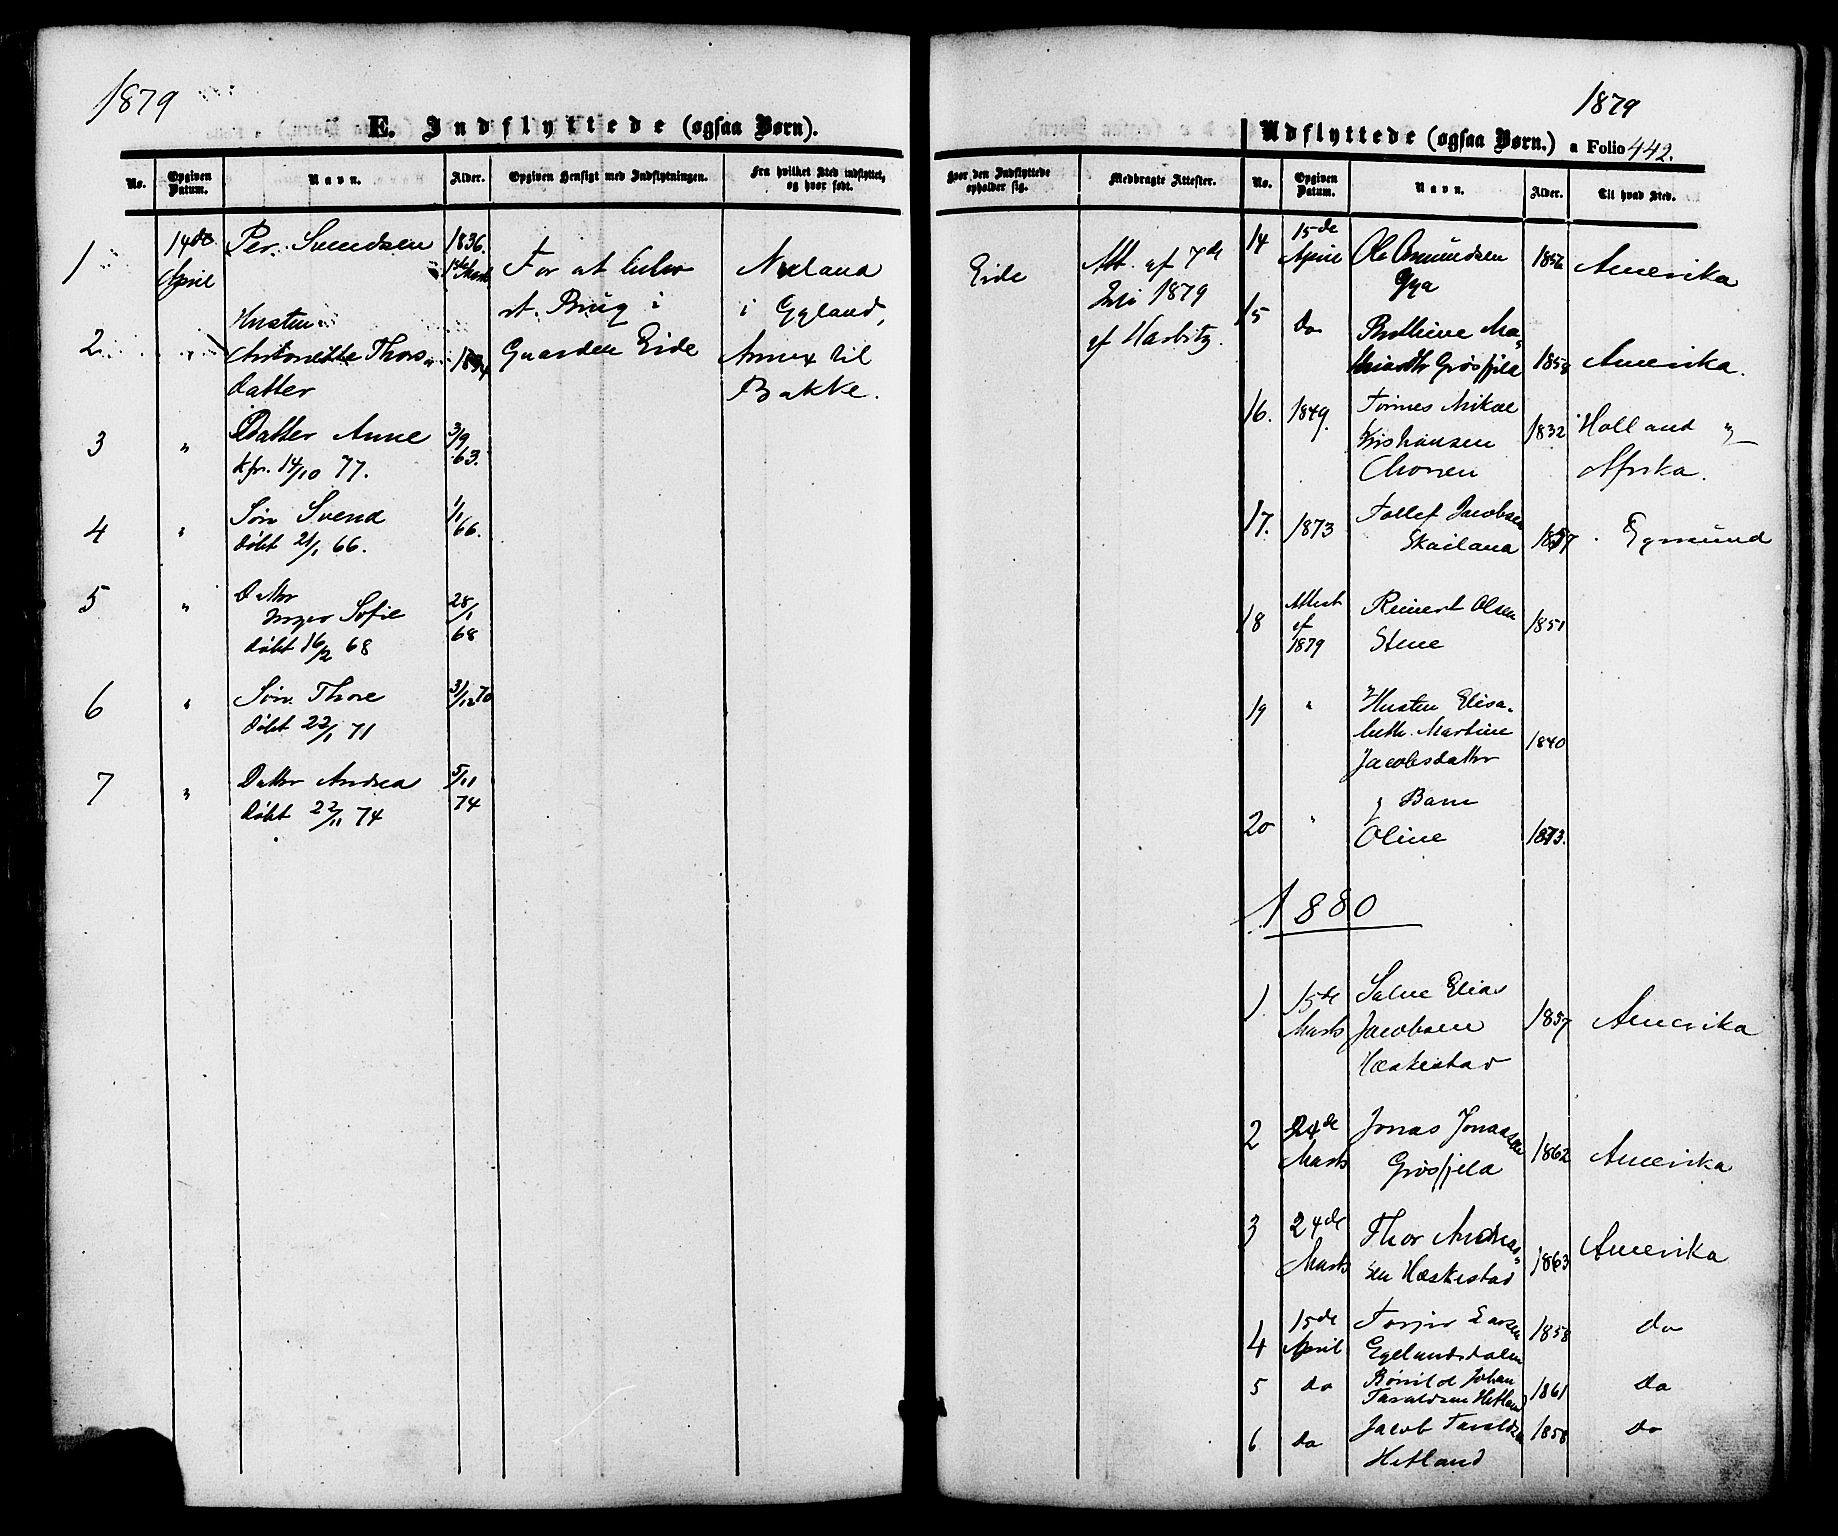 1879
E. Indflyttede (ogsaa Børn).
No. Opgiven Datum. Navn. Alder. Opgiven Hensigt med Indflytningen. Fra hvilket Sted indflyttet, og hvor født.
1 14de April Per. Svendsen 1836.
For at leve
at. Brug i
Gaarden Eide
Nuland
i Gyland,
Annex til
Bakke.
2 " Hustru
Antonette Thors
datter
3 " Datter Anne 3/9 63.
kfr. 14/10 77.
4 " Søn Svend 1/1 66.
døbt 21/1 66.
5 " Datter 28/1 68
Inger Sofie
døbt 16/2 68
6 " Søn Thore 31/12 70
døbt 22/1 71
7 " Datter Andrea 5/11 74
døbt 22/11 74
1879
Udflyttede (ogsaa Børn.) a Folio 442.
Hvor den Indflyttede opholder sig. Medbragte Attester. No. Opgiven Datum. Navn. Alder. Til hvad Sted.
Eide
Att. af 7de
1879
af Harbitz.
14 15de April Ole Osmundsen 1856 Amerika
Gya
15 do Ma-
Grøsfjeld 1858 Amerika.
16. 1849. Tønnes Mikal
Kristiansen 1832 Holland og
Afrika.
17. 1873 Tollef Jacobsen
Skailand 1857 Egersund
18 Attest af 1879 Reinert Olsen 1851
Stene
19 " Hustru Elisa-
beth. Martine 1840
Jacobsdatter
20 " Barn
Oline 1873.
1880
1. 15de Marts Salve Elias
Jacobsen 1857 Amerika
Hæskestad
2 24de Marts Jonas Jonassen
Grøsfjeld 1862 Amerika
3 24de Marts Thor Andreas-
sen Hæskestad 1863 Amerika
4 15de April Torjer Larsen 1858 do
Egelandsdalen
5 do Bønild Johan 1861 do
Taraldsen Hetland
6 do Jacob Taraldsen 1858 do
Hetland